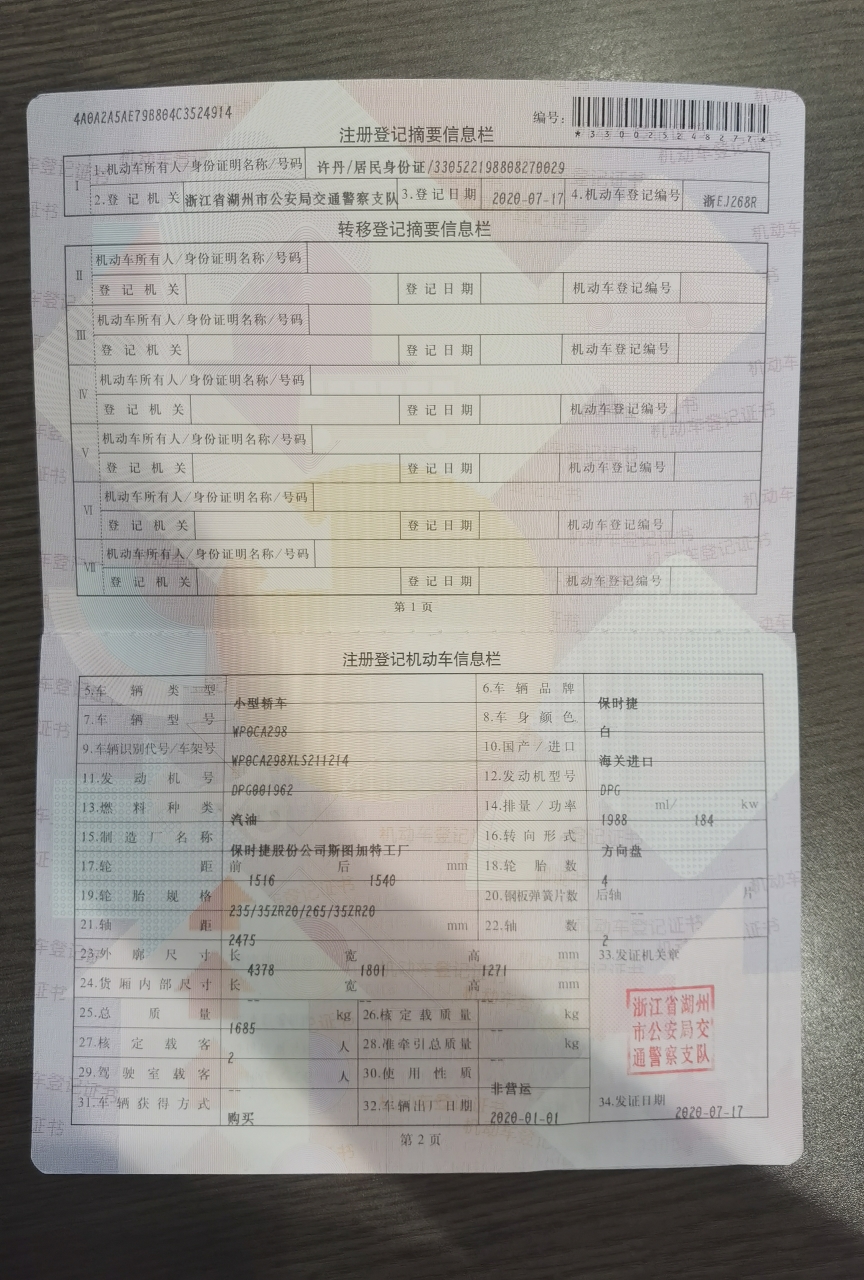 4A0A2A5AE79B804C3524914
编号：
*330025248277*
注册登记摘要信息栏
I 1.机动车所有人/身份证明名称/号码 许丹/居民身份证/330522198808270029
2.登记机关 浙江省湖州市公安局交通警察支队 3.登记日期 2020-07-17 4.机动车登记编号 浙EJ268R
转移登记摘要信息栏
II 机动车所有人/身份证明名称/号码
登记机关 登记日期 机动车登记编号
III 机动车所有人/身份证明名称/号码
登记机关 登记日期 机动车登记编号
IV 机动车所有人/身份证明名称/号码
登记机关 登记日期 机动车登记编号
V 机动车所有人/身份证明名称/号码
登记机关 登记日期 机动车登记编号
VI 机动车所有人/身份证明名称/号码
登记机关 登记日期 机动车登记编号
VII 机动车所有人/身份证明名称/号码
登记机关 登记日期 机动车登记编号
第1页
注册登记机动车信息栏
5.车辆类型 小型轿车 6.车辆品牌 保时捷
7.车辆型号 WP0CA298 8.车身颜色 白
9.车辆识别代号/车架号 WP0CA298XLS211214 10.国产/进口 海关进口
11.发动机号 DPG001962 12.发动机型号 DPG
13.燃料种类 汽油 14.排量/功率 1988 ml/ 184 kw
15.制造厂名称 保时捷股份公司斯图加特工厂 16.转向形式 方向盘
17.轮距 前 1516 后 1540 mm 18.轮胎数 4
19.轮胎规格 235/35ZR20/265/35ZR20 20.钢板弹簧片数 后轴 -- 片
21.轴距 2475 mm 22.轴数 2
23.外廓尺寸 长 4378 宽 1801 高 1271 mm 33.发证机关章
24.货厢内部尺寸 长 -- 宽 -- 高 -- mm
浙江省湖州
市公安局交
通警察支队
25.总质量 1685 kg 26.核定载质量 -- kg
27.核定载客 2 人 28.准牵引总质量 -- kg
29.驾驶室载客 -- 人 30.使用性质 非营运
31.车辆获得方式 购买 32.车辆出厂日期 2020-01-01 34.发证日期 2020-07-17
第2页